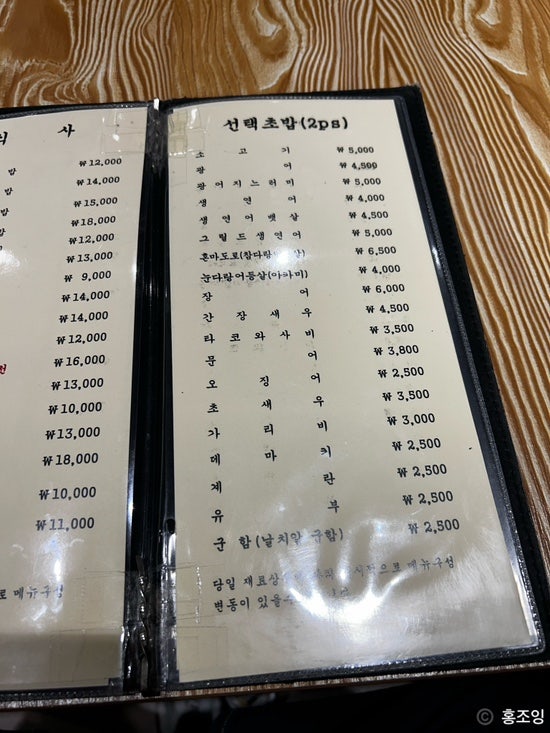 사
밥 ₩12,000
밥 ₩14,000
밥 ₩15,000
밥 ₩18,000
₩12,000
₩13,000
₩ 9,000
₩14,000
₩14,000
₩12,000
₩16,000
₩13,000
₩10,000
₩13,000
₩18,000
₩10,000
₩11,000
로 메뉴구성
선택초밥(2ps)
소 고 기 ₩ 5,000
광 어 ₩ 4,500
광 어 지 느 러 미 ₩ 5,000
생 연 어 ₩ 4,000
생 연 어 뱃 살 ₩ 4,500
그 릴 드 생 연 어 ₩ 5,000
혼마도로(참다랑 살) ₩ 6,500
눈다랑어등살(아까미) ₩ 4,000
장 어 ₩ 6,000
간 장 새 우 ₩ 4,500
타 코 와 사 비 ₩ 3,500
문 어 ₩ 3,800
오 징 어 ₩ 2,500
초 새 우 ₩ 3,500
가 리 비 ₩ 3,000
데 마 키 ₩ 2,500
계 란 ₩ 2,500
유 부 ₩ 2,500
군 함(날치알 군함) ₩ 2,500
당일 재료상 으로 메뉴구성
변동이 있을수
© 홍조잉